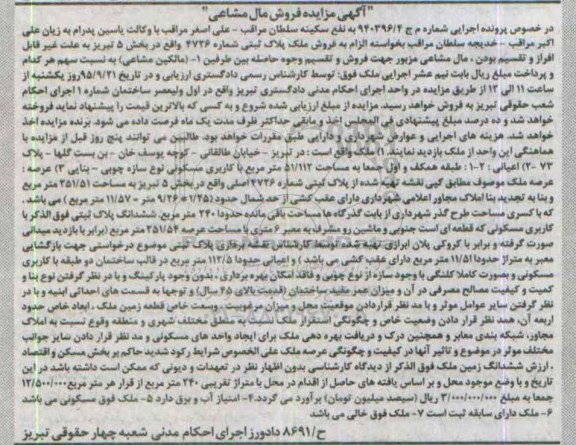 "آگهی مزایده فروش مال مشاعی"
در خصوص پرونده اجرایی شماره م ج ۹۴۰۳۹۶/۴ به نفع سکینه سلطان مراقب - علی اصغر مراقب با وکالت یاسین پدرام به زیان علی
اکبر مراقب - خدیجه سلطان مراقب بخواسته الزام به فروش ملک پلاک ثبتی شماره ۴۷۲۶ واقع در بخش ۵ تبریز به علت غیر قابل
افراز و تقسیم بودن ، مال مشاعی مزبور جهت فروش و تقسیم وجوه حاصله بین طرفین ۱- (مالکین مشاعی) به نسبت سهم هر کدام
و پرداخت مبلغ ریال بابت نیم عشر اجرایی ملک فوق: توسط کارشناس رسمی دادگستری ارزیابی و در تاریخ ۹۵/۹/۲۱ روز یکشنبه از
ساعت ۱۱ الی ۱۲ از طریق مزایده در واحد اجرای احکام مدنی دادگستری تبریز واقع در اول ولیعصر ساختمان شماره ۱ اجرای احکام
شعب حقوقی تبریز به فروش خواهد رسید. مزایده از مبلغ ارزیابی شده شروع و به کسی که بالاترین قیمت را پیشنهاد نماید فروخته
خواهد شد و ده درصد مبلغ پیشنهادی فی المجلس اخذ و مابقی حداکثر ظرف مدت یک ماه فرصت داده می شود. برنده مزایده اخذ
خواهد شد. هزینه های اجرایی و عوارض شهرداری و دارایی طبق مقررات خواهد بود. طالبین می توانند پنج روز قبل از مزایده با
هماهنگی این واحد از ملک بازدید نمایند. ۱) ملک واقع است : در تبریز - خیابان طالقانی - کوچه یوسف خان - بن بست گلها - پلاک
۷۳ -۲) اعیانی : ۲-۱ : طبقه همکف و اول جمعا به مساحت ۵۱/۱۱۲ متر مربع با کاربری مسکونی نوع سازه چوبی - بنایی ۳) عرصه :
عرصه ملک موصوف مطابق کپی نقشه تهیه شده از پلاک ثبتی شماره ۴۷۲۶ اصلی واقع در بخش ۵ تبریز به مساحت ۲۵۱/۵۱ متر مربع
و بنا به تجدید بنا املاک مجاور اعلامی شهرداری دارای عقب کشی از حد شمال حدود (۱/۲۵ × ۹/۲۶ = ۱۱/۵۷ متر مربع ) می باشد.
که با کسری مساحت طرح گذر شهرداری از بابت گذرگاه ها مساحت باقی مانده حدودا ۲۴۰ متر مربع. ششدانگ پلاک ثبتی فوق الذکر با
کاربری مسکونی که قطعه ای است جنوبی و ماشین رو مشرف به معبر ۶ متری با مساحت عرصه ۲۵۱/۵۴ متر مربع (برابر با بازدید میدانی
صورت گرفته و برابر با کروکی پلان ابرازی تهیه شده توسط کارشناس نقشه برداری پلاک ثبتی موضوع درخواستی جهت بازگشایی
معبر به متراژ حدودا ۱۱/۵۱ متر مربع دارای عقب کشی می باشد ) و اعیانی حدودا ۱۱۲/۵ متر مربع در قالب ساختمان دو طبقه با کاربری
مسکونی و بصورت کاملا کلنگی با وجود سازه از نوع چوبی و فاقد امکان بهره برداری ، بدون وجود پارکینگ و با در نظر گرفتن نوع بنا و
کمیت و کیفیت مصالح مصرفی در آن و میزان عمر مفید ساختمان (قدمت بالای ۴۵ سال) و توجها به قسمت های احداثی ابنیه و با در
نظر گرفتن سایر عوامل موثر و با مد نظر قراردادن موقعیت محل و میزان مرغوبیت ، وسعت خاص قطعه زمین ملک ، ابعاد خاص حدود
اربعه آن، همد نظر قرار دادن وضعیت خاص و چگونگی استقرار ملک نسبت به مناطق مختلف شهری و منطقه وقوع نسبت به املاک
مجاور، شبکه بندی معابر و همچنین درک و دریافت بهره دهی ملک برای ایجاد واحد های مسکونی و مد نظر قرار دادن سایر جوانب
مختلف موثر در موضوع و تاثیر آنها در کیفیت و چگونگی عرصه ملک علی الخصوص شرایط رکود شدید حاکم بر بخش مسکن و اقتصاد
، ارزش ششدانگ زمین ملک فوق الذکر از دیدگاه کارشناسی بدون اظهار نظر در تعهدات و دیونی که ممکن است داشته باشد در این
تاریخ و با وضع موجود محل و بر اساس یافته های حاصل از اقدام در محل با متراژ تقریبی ۲۴۰ متر مربع از قرار هر متر مربع ۱۲/۵۰۰/۰۰۰
جمعا به مبلغ ۳/۰۰۰/۰۰۰/۰۰۰ ریال (سیصد میلیون تومان) برآورد می گردد.۴- امتیاز آب و برق دارد ۵- ملک فوق مسکونی می باشد
۶- ملک دارای سابقه ثبت است ۷- ملک فوق خالی می باشد
ح/۸۶۹۱ دادورز اجرای احکام مدنی شعبه چهار حقوقی تبریز